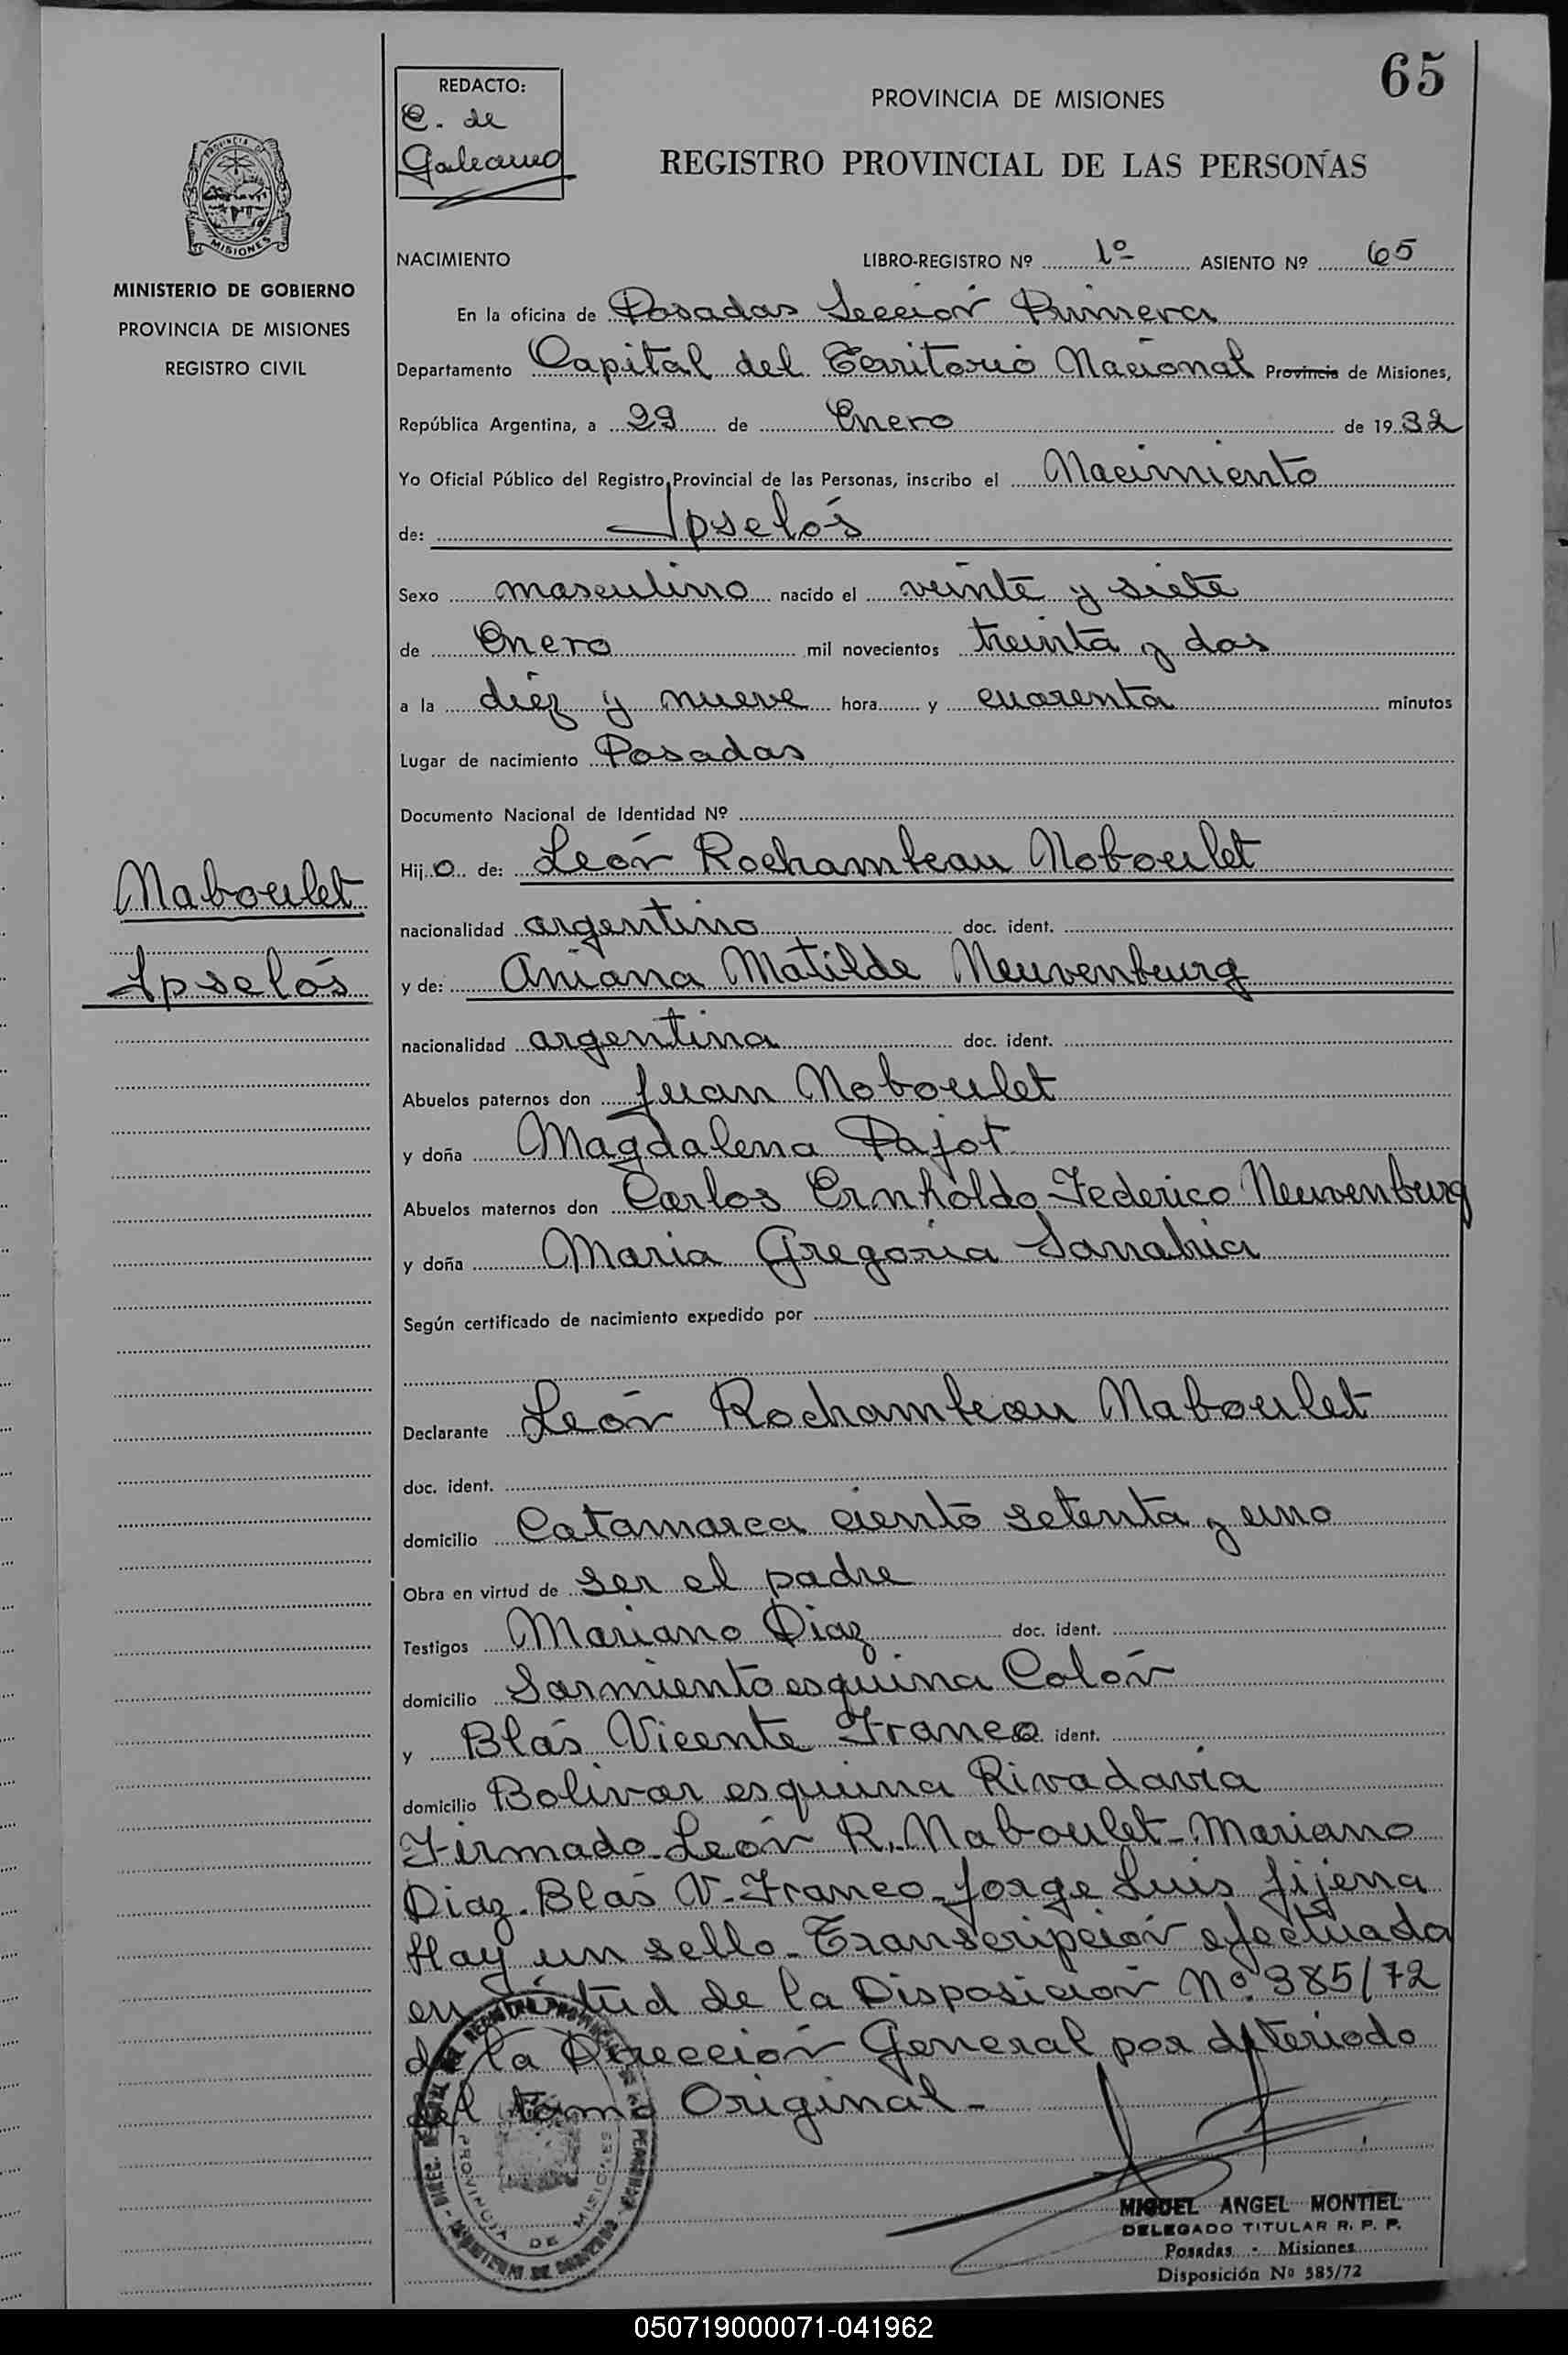 65
REDACTO:
C. de
Galeano
PROVINCIA DE MISIONES
REGISTRO PROVINCIAL DE LAS PERSONAS
PROVINCIA DE
MISIONES
MINISTERIO DE GOBIERNO
PROVINCIA DE MISIONES
REGISTRO CIVIL
NACIMIENTO LIBRO-REGISTRO Nº 1º ASIENTO Nº 65
En la oficina de Posadas Sección Primera
Departamento Capital del Territorio Nacional Provincia de Misiones,
República Argentina, a 29 de Enero de 1932
Yo Oficial Público del Registro Provincial de las Personas, inscribo el Nacimiento
de: Ipselós
Sexo masculino nacido el veinte y siete
de Enero mil novecientos treinta y dos
a la diéz y nueve hora y cuarenta minutos
Lugar de nacimiento Posadas
Documento Nacional de Identidad Nº
Hijo de: León Rochambeau Noboulet
Naboulet
Ipselós
nacionalidad argentino doc. ident.
y de: Aniana Matilde Neuvenburg
nacionalidad argentina doc. ident.
Abuelos paternos don Juan Noboulet
y doña Magdalena Pajot
Abuelos maternos don Carlos Ernholdo Federico Neuvenburg
y doña Maria Gregoria Sanabria
Según certificado de nacimiento expedido por
Declarante León Rochambeau Naboulet
doc. ident.
domicilio Catamarca ciento setenta y uno
Obra en virtud de ser el padre
Testigos Mariano Diaz doc. ident.
domicilio Sarmiento esquina Colón
y Blás Vicente Franco ident.
domicilio Bolivar esquina Rivadavia
Firmado-León R. Naboulet-Mariano
Diaz-Blás V-Franco-Jorge Luis Jijena
Hay un sello-Transcripción efectuada
en virtud de la Disposición Nº 385/72
de la Dirección General por deteriodo
del tomo Original-
PROVINCIA DE MISIONES
MIGUEL ANGEL MONTIEL
DELEGADO TITULAR R. P. P.
Posadas - Misiones
Disposición Nº 385/72
050719000071-041962